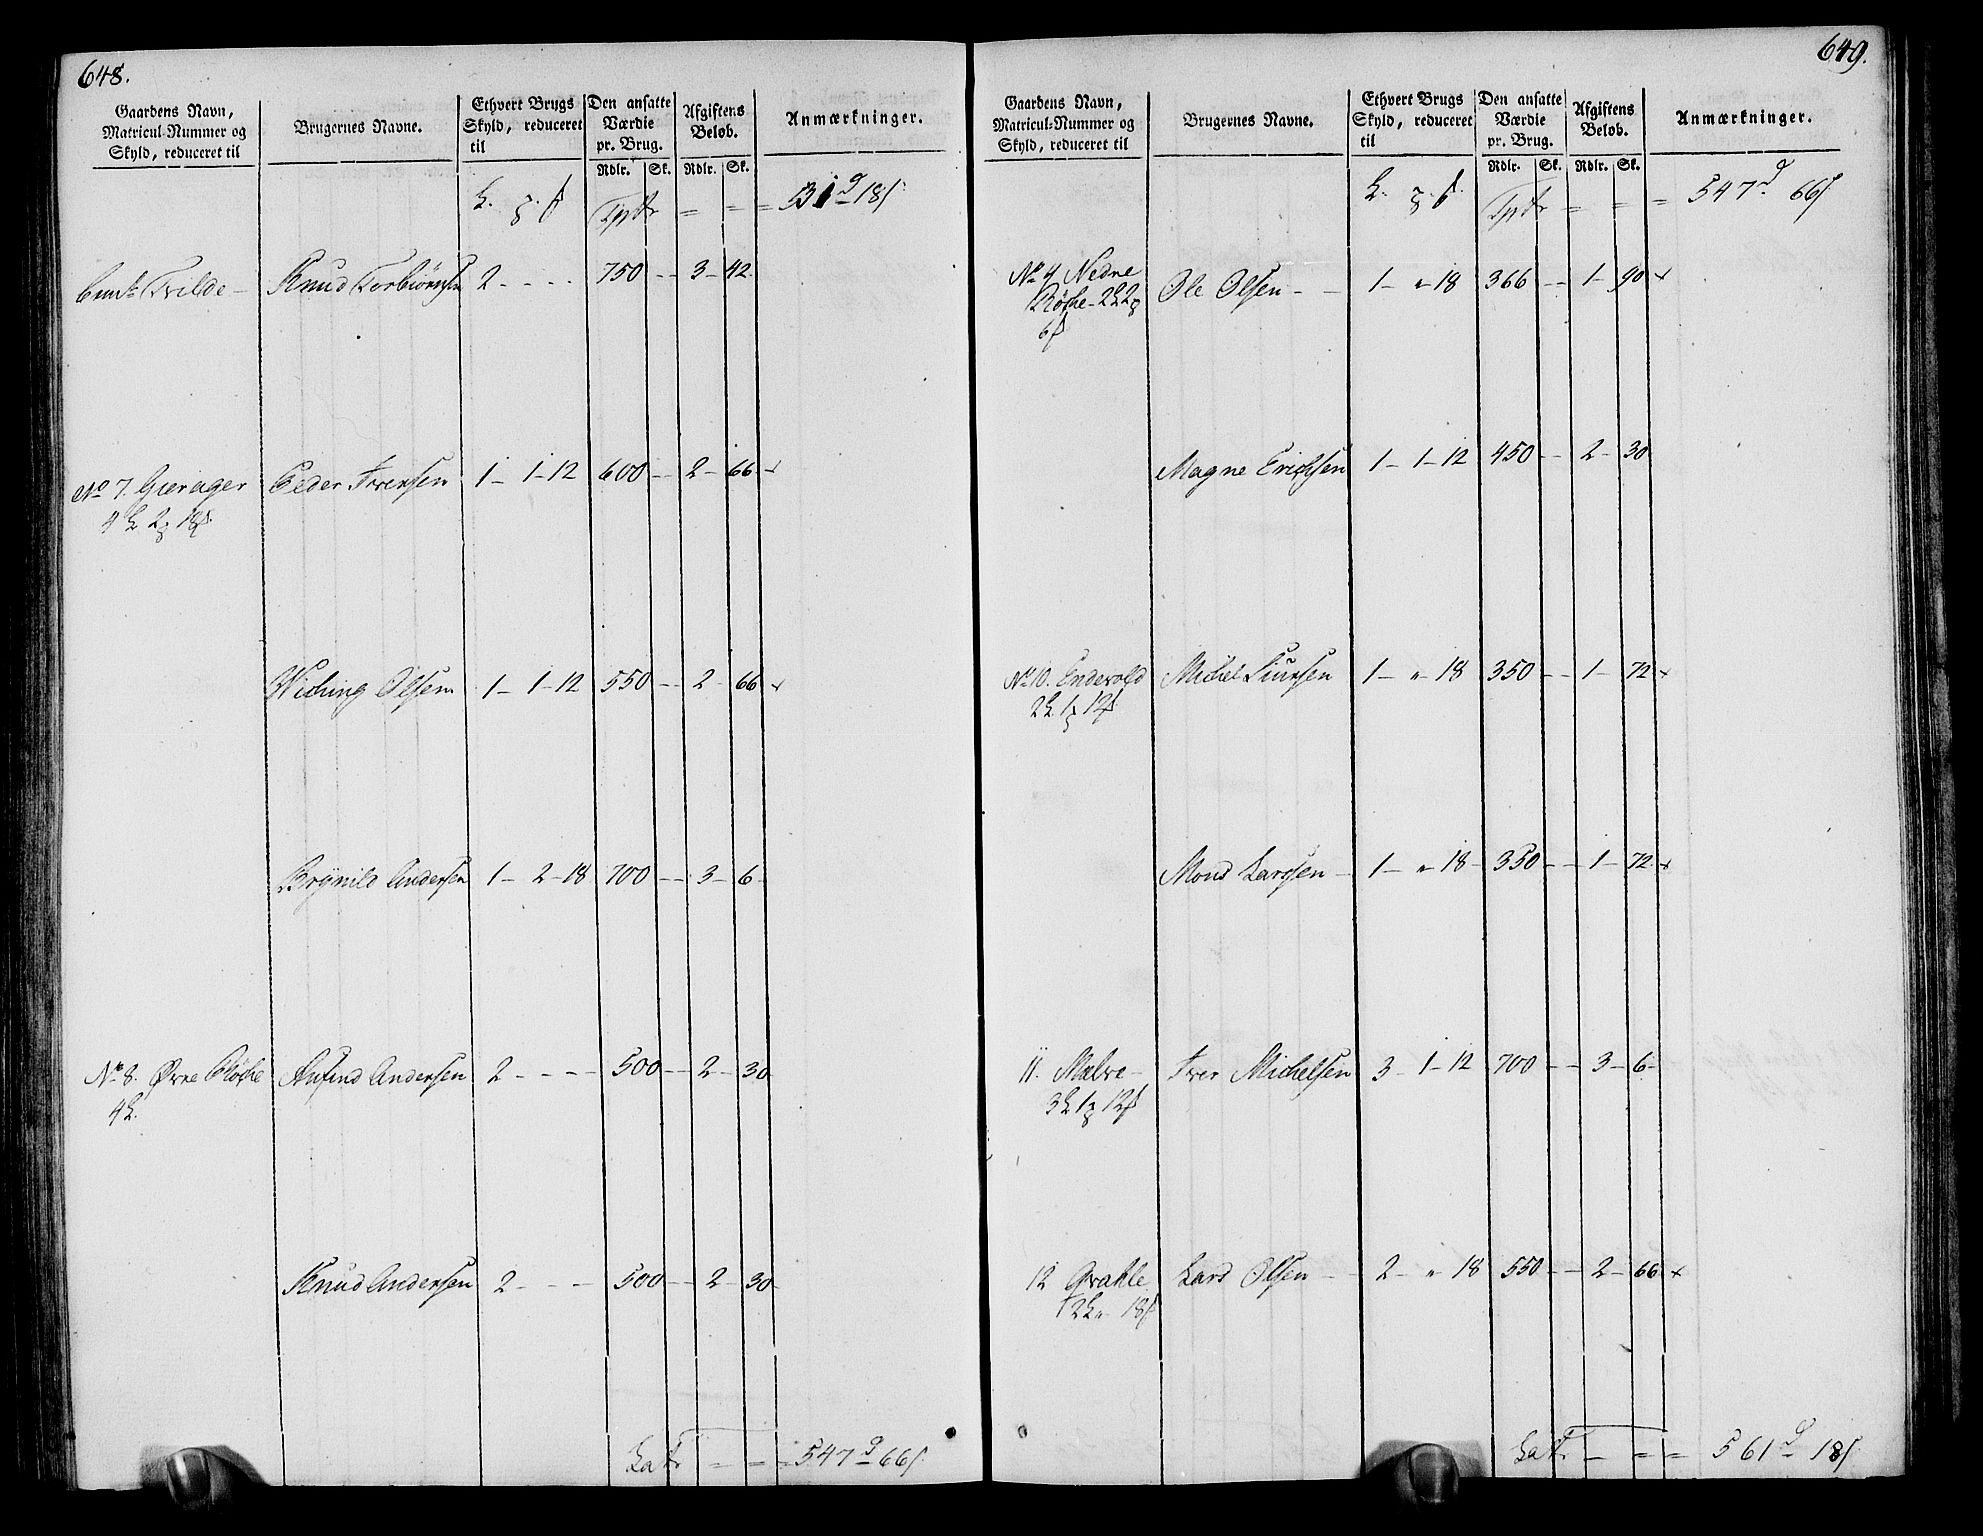 648.
Gaardens Navn,
Matricul-Nummer og
Skyld, reduceret til
Brugernes Navne.
Ethvert Brugs
Skyld, reduceret
til
Den ansatte
Værdie
pr. Brug.
Afgiftens
Beløb.
Anmærkninger.
Rdlr. Sk. Rdlr. Sk.
Tptr = = = 18ſ
Tvilde — Knud Torbiörnsen 2 - - - 750 - - 3 - 42
No 7. Gierager Peder Iversen 1 - 1 - 12 600 - - 2 - 66 -
4 2 18ſ
Wiching Olsen 1 - 1 - 12 550 - - 2 - 66
Brynild Andersen 1 - 2 - 18 700 - - 3 - 6 -
No 8. Øvre Röthe Anfind Andersen 2 - - - 500 - - 2 - 30
4
Knud Andersen 2 - - - 500 - - 2 - 30
Latr = = = 547 66ſ
649.
Gaardens Navn,
Matricul-Nummer og
Skyld, reduceret til
Brugernes Navne.
Ethvert Brugs
Skyld, reduceret
til
Den ansatte
Værdie
pr. Brug.
Afgiftens
Beløb.
Anmærkninger.
Rdlr. Sk. Rdlr. Sk.
Tptr = = = 547 66ſ
No 4 Nedre
Röthe - 2 2 Ole Olsen - - 1 - " 18 366 - - 1 - 90
6ſ
Magne Erichsen 1 - 1 - 12 450 - - 2 - 30
No 10. Endevold Michel Siursen 1 - " 18 350 - - 1 - 72
2 1 12ſ
Mons Larssen - 1 - " 18 350 - - 1 - 72
11. Mælve - Iver Michelsen 3 - 1 - 12 700 - - 3 - 6 -
3 1 12ſ
12 Qvahle Lars Olsen - 2 - " 18 550 - - 2 - 66
2 " 18ſ
Latr - = = 561 18ſ